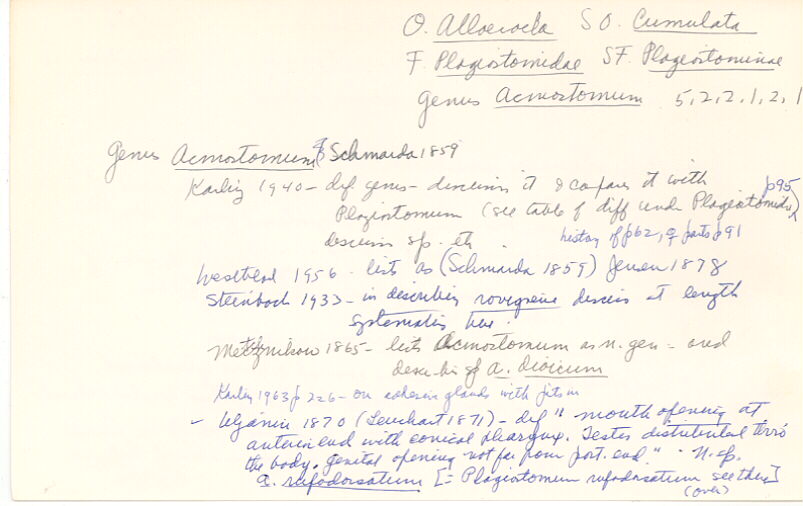 O. Alloeocoela SO. Cumulata
F. Plagiostomidae SF. Plagiostominae
Genus Acmostomum 5,2,2,1,2,1
Genus Acmostomum Schmarda 1859
Karling 1940 - def. genus - discussing it & compares it with p95
Plagiostomum (see table of diff under Plagiostomidae)
discuss sp. etc. history of p62, ♀ parts p91
Westblad 1956 - lists as (Schmarda 1859) Jensen 1878
Steinbock 1933 - in describing rovignense discuss at length
systematics here.
Metschnikow 1865 - lists Acmostomum as n. gen - and
describ of A. dioicum
Karling 1963 p 226 - on adhesive glands with
- Uljanin 1870 (Leuchart 1871) - def "mouth opening at
anterior end with conical pharynx. Testes distributed thro
the body. genital opening not far from post. end." - N. sp.
A. rufodorsatum [= Plagiostomum rufodorsatum see there]
(over)